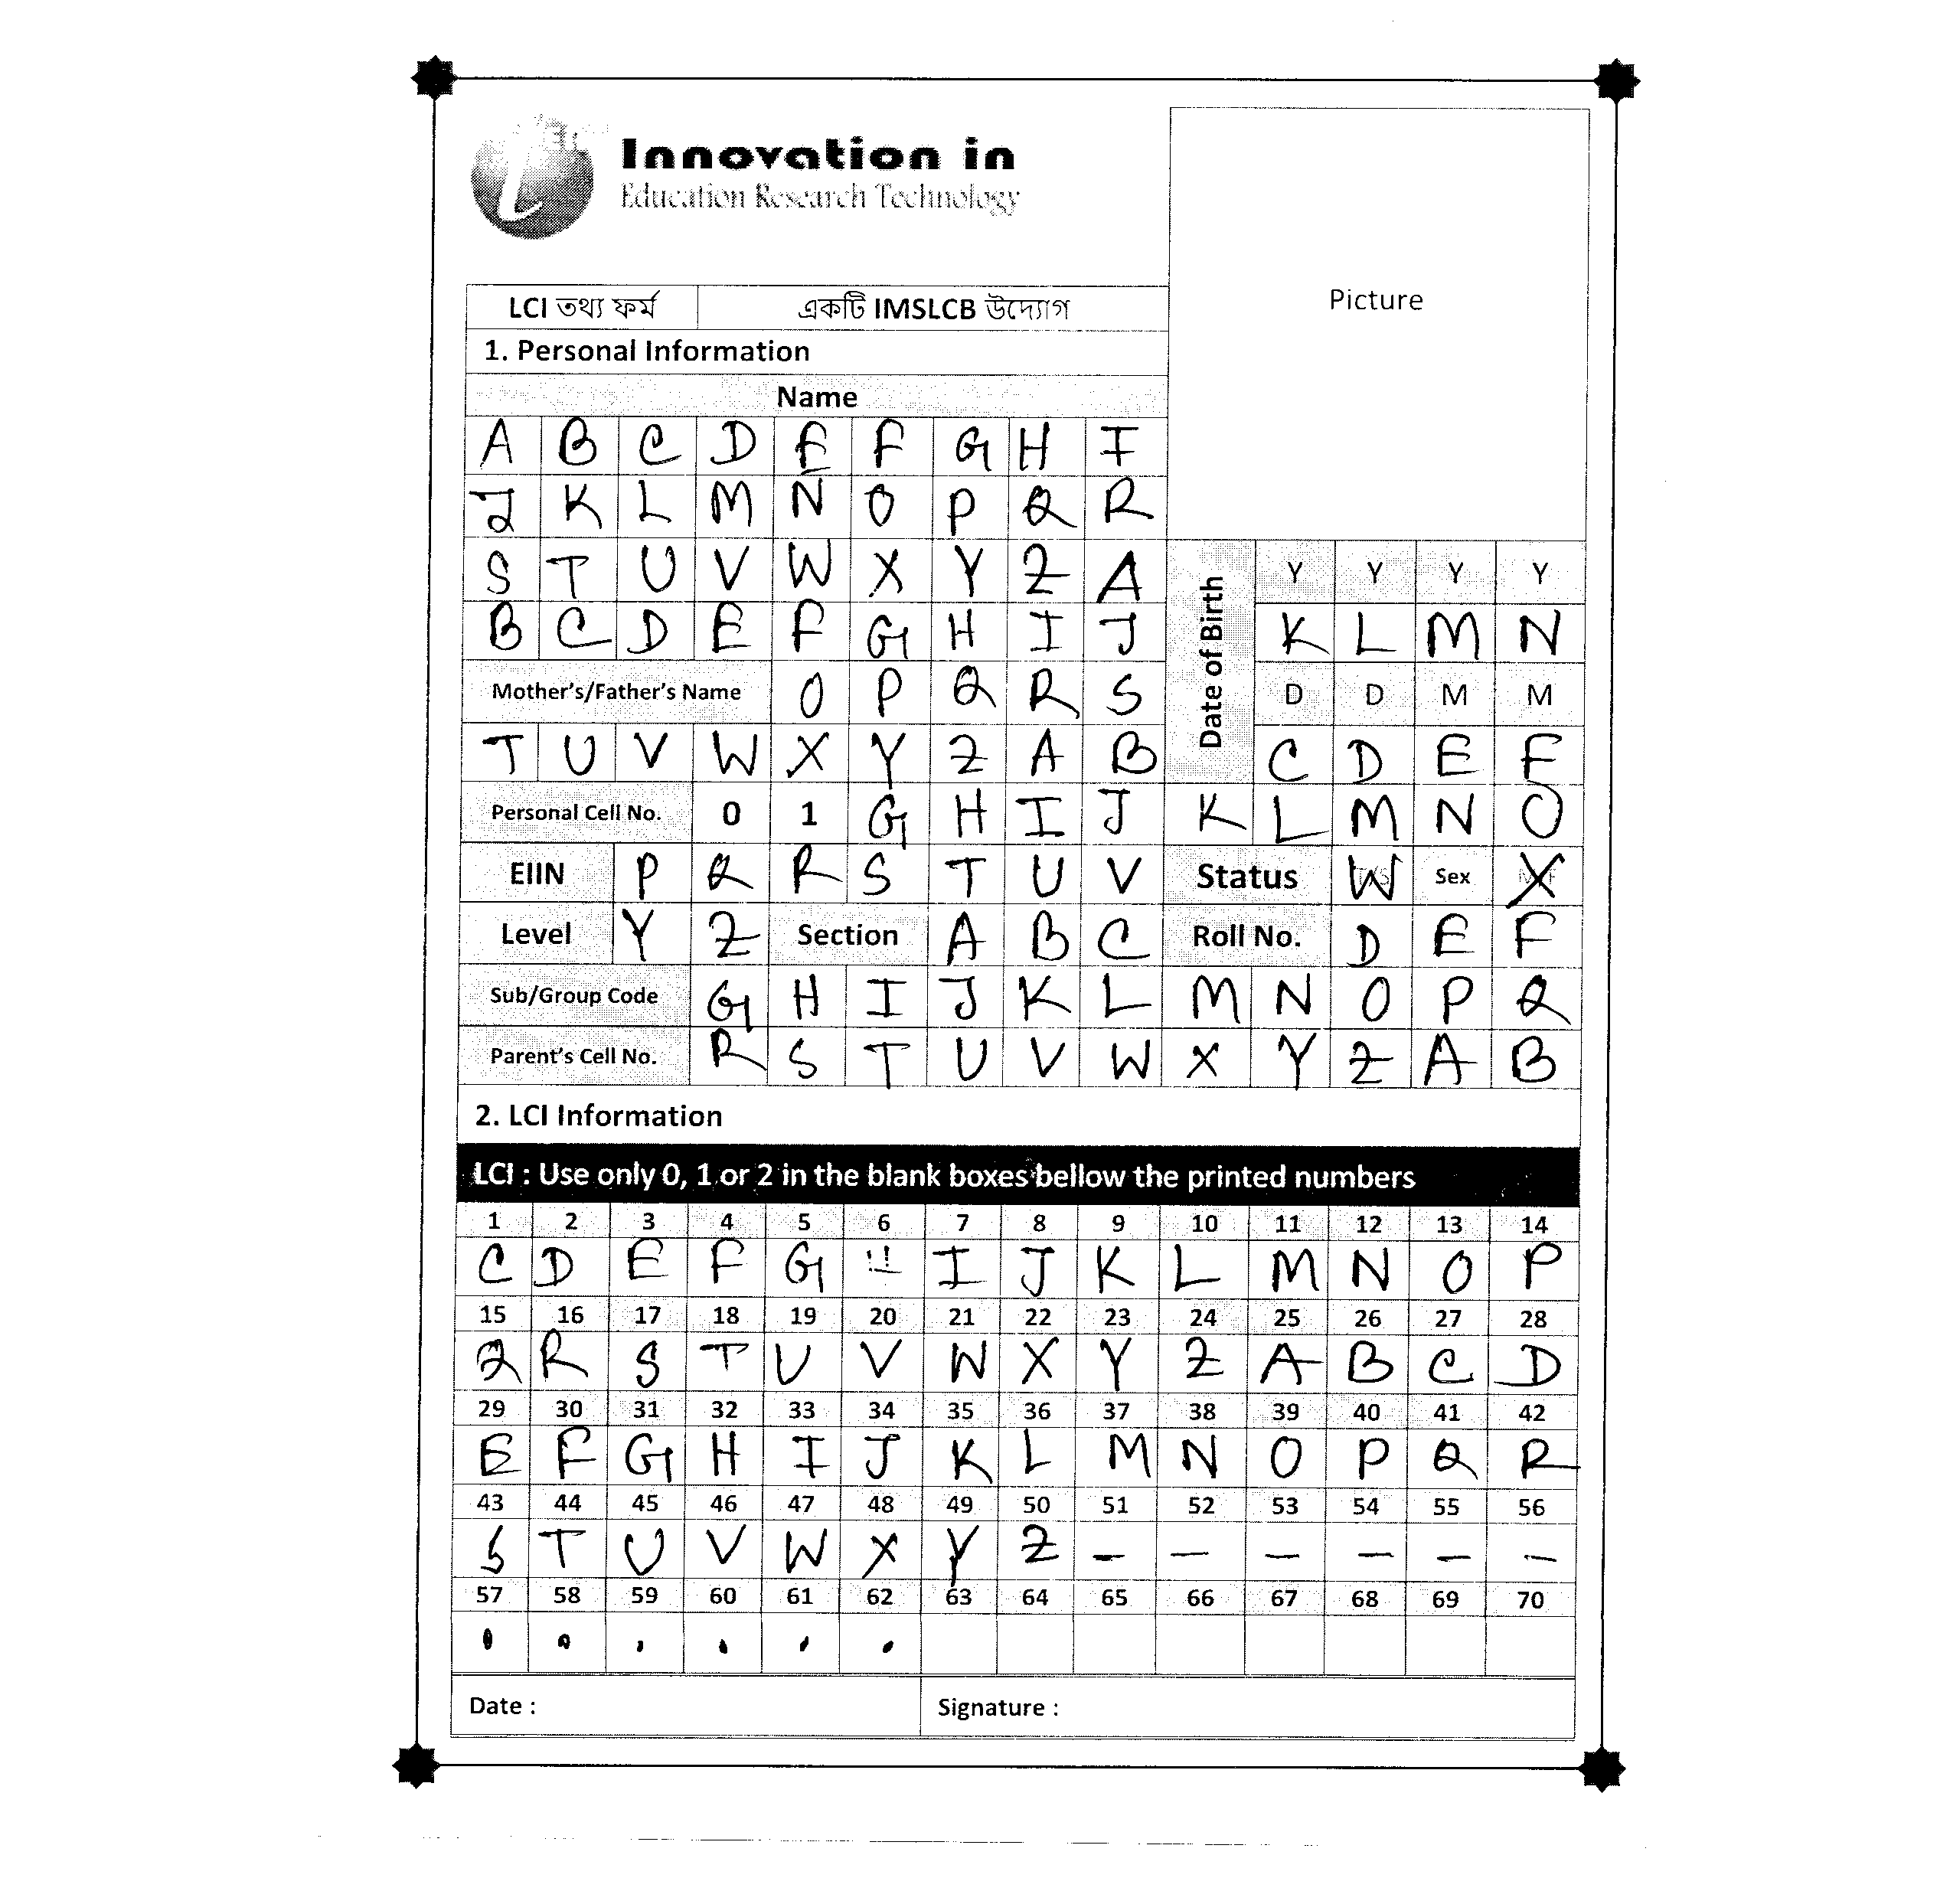 Innovation in
Education Research Technology
Picture
LCI তথ্য ফর্ম একটি IMSLCB উদ্যোগ
1. Personal Information
Name
A B C D E F G H I
J K L M N O P Q R
S T U V W X Y Z A
Date of Birth
Y Y Y Y
B C D E F G H I J K L M N
Mother's/Father's Name O P Q R S D D M M
T U V W X Y Z A B C D E F
Personal Cell No. 0 1 G H I J K L M N O
EIIN P Q R S T U V Status W Sex X
Level Y Z Section A B C Roll No. D E F
Sub/Group Code G H I J K L M N O P Q
Parent's Cell No. R S T U V W X Y Z A B
2. LCI Information
LCI : Use only 0, 1 or 2 in the blank boxes bellow the printed numbers
1 2 3 4 5 6 7 8 9 10 11 12 13 14
C D E F G I J K L M N O P
15 16 17 18 19 20 21 22 23 24 25 26 27 28
Q R S T U V W X Y Z A B C D
29 30 31 32 33 34 35 36 37 38 39 40 41 42
E F G H I J K L M N O P Q R
43 44 45 46 47 48 49 50 51 52 53 54 55 56
S T U V W X Y Z – – – – – –
57 58 59 60 61 62 63 64 65 66 67 68 69 70
Date :
Signature :